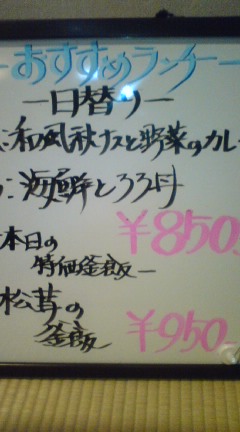 ーおすすめランチー
ー日替りー
:和風秋ナスと野菜のカレ
:海鮮とろろ丼
¥850
本日の
特価釜飯ー
松茸の
釜飯
¥950